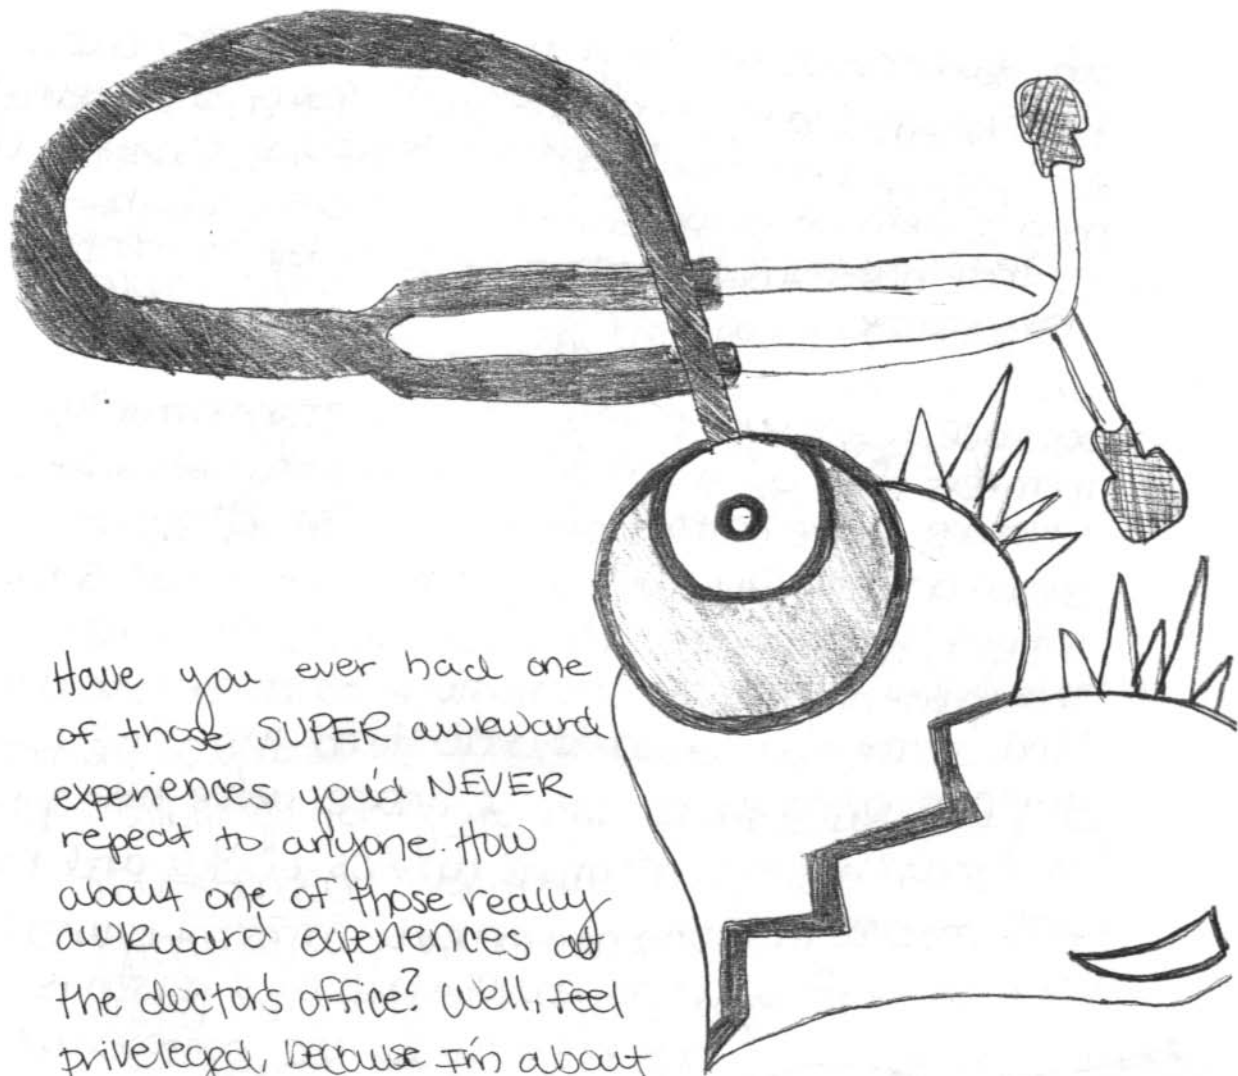 Have you ever had one
of those SUPER awkward
experiences you'd NEVER
repeat to anyone. How
about one of those really
awkward experiences at
the doctor's office? Well, feel
priveleged, because I'm about